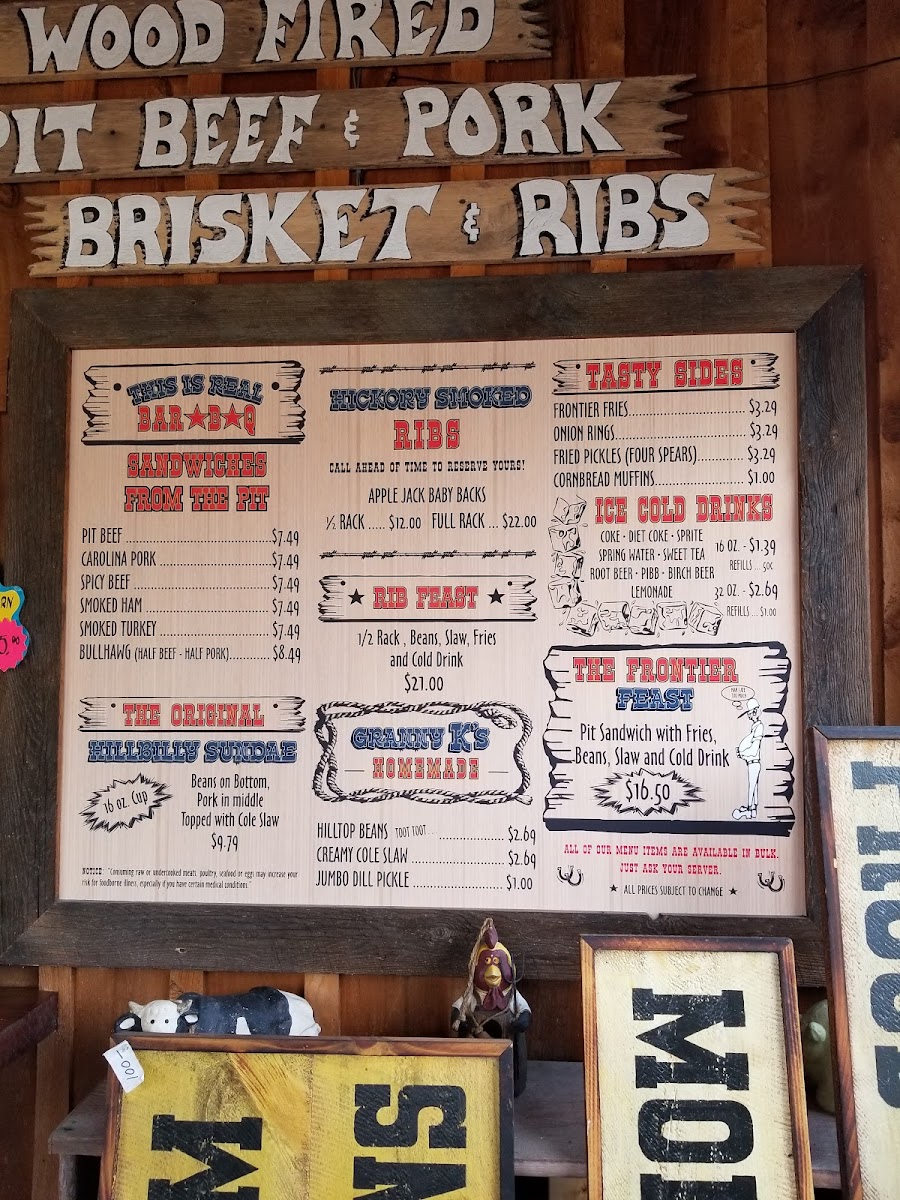 WOOD FIRED
PIT BEEF & PORK
BRISKET & RIBS
THIS IS REAL
BAR★B★Q
SANDWICHES
FROM THE PIT
PIT BEEF ........ $7.49
CAROLINA PORK ........ $7.49
SPICY BEEF ........ $7.49
SMOKED HAM ........ $7.49
SMOKED TURKEY ........ $7.49
BULLHAWG (HALF BEEF - HALF PORK)............ $8.49
THE ORIGINAL
HILLBILLY SUNDAE
16 oz. Cup
Beans on Bottom,
Pork in middle
Topped with Cole Slaw
$9.79
NOTICE: "Consuming raw or undercooked meats, poultry, seafood or eggs may increase your
risk for foodborne illness, especially if you have certain medical conditions."
HICKORY SMOKED
RIBS
CALL AHEAD OF TIME TO RESERVE YOURS!
APPLE JACK BABY BACKS
½ RACK ..... $12.00 FULL RACK ... $22.00
★ RIB FEAST ★
1/2 Rack , Beans, Slaw, Fries
and Cold Drink
$21.00
GRANNY K'S
HOMEMADE
HILLTOP BEANS TOOT TOOT ........ $2.69
CREAMY COLE SLAW ........ $2.69
JUMBO DILL PICKLE ........ $1.00
TASTY SIDES
FRONTIER FRIES........ $3.29
ONION RINGS........ $3.29
FRIED PICKLES (FOUR SPEARS)............. $3.29
CORNBREAD MUFFINS........ $1.00
ICE COLD DRINKS
COKE • DIET COKE • SPRITE
SPRING WATER • SWEET TEA
ROOT BEER • PIBB • BIRCH BEER
LEMONADE
16 OZ. - $1.39
REFILLS ... 50¢
32 OZ. - $2.69
REFILLS ... $1.00
THE FRONTIER
FEAST
Pit Sandwich with Fries,
Beans, Slaw and Cold Drink
$16.50
ALL OF OUR MENU ITEMS ARE AVAILABLE IN BULK.
JUST ASK YOUR SERVER.
★ ALL PRICES SUBJECT TO CHANGE ★